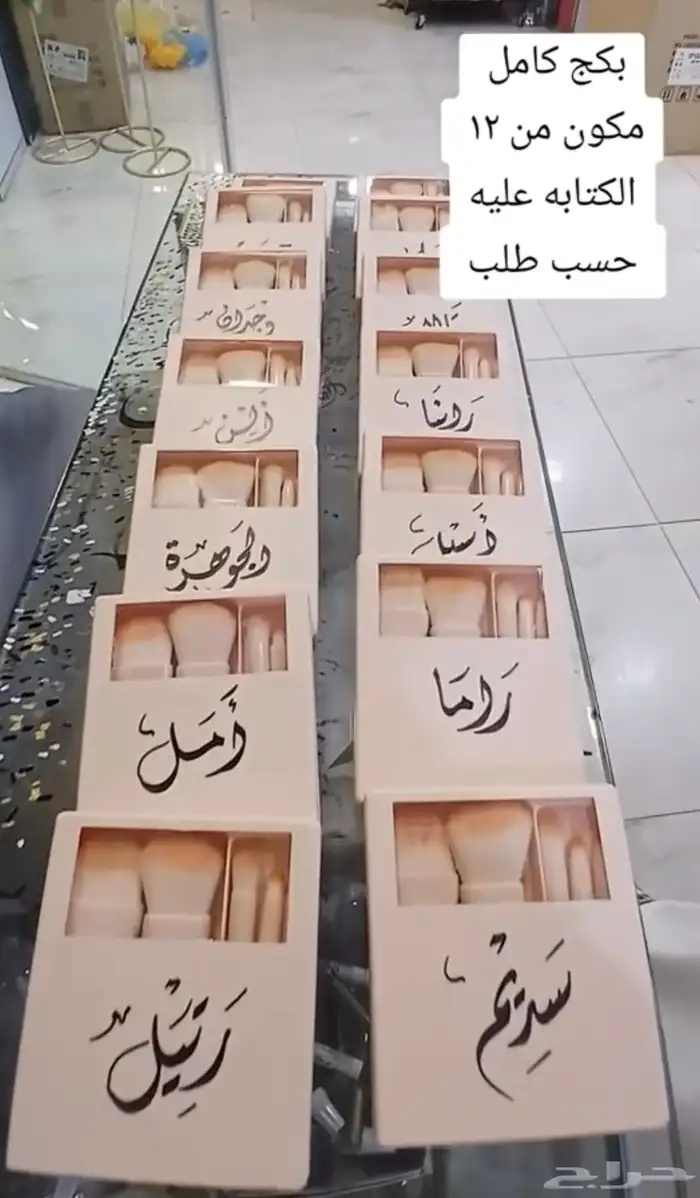 بكج كامل
مكون من ١٢
الكتابه عليه
حسب طلب
وجدان
رانيا
الجوهرة
راما
أمل
سديم
رتيل
حراج